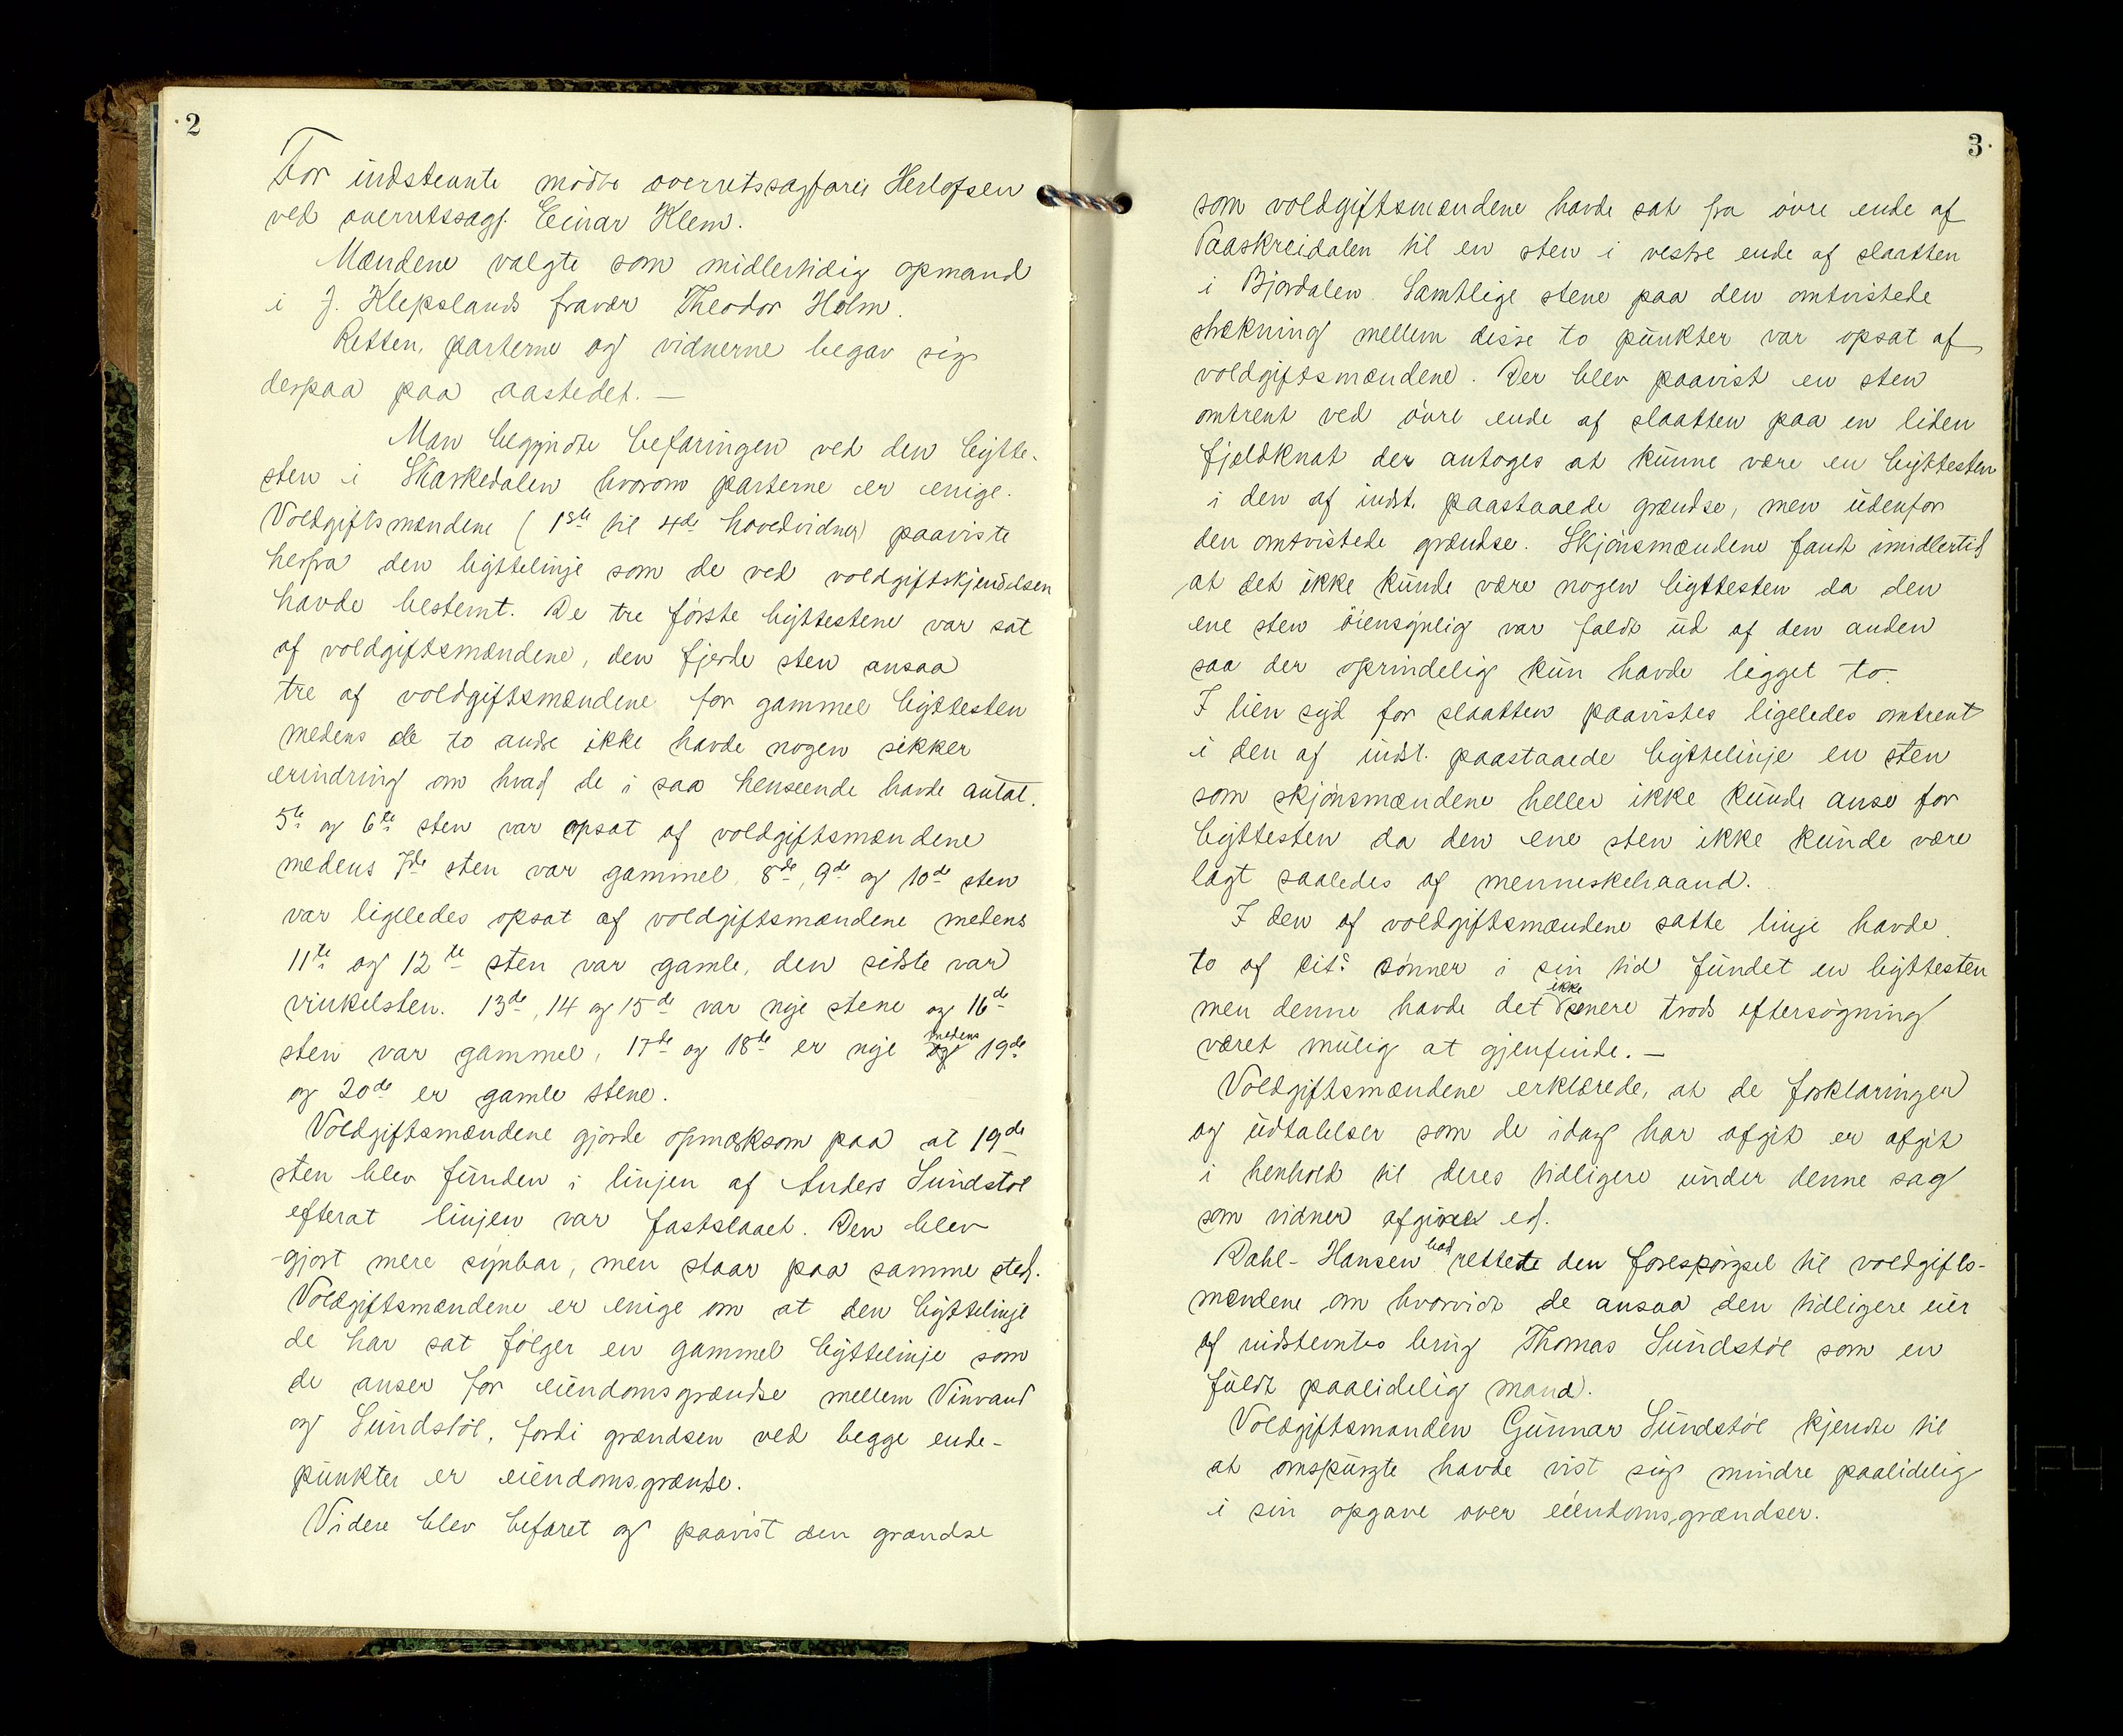 2
For indstevnte mødte overretssagfører Herlofsen
ved overretssagf. Einar Klem.
Mændene valgte som midlertidig opmand
i J. Klepslands fravær Theodor Holm.
Retten, parterne og vidnerne begav sig
derpaa paa aastedet. —
Man begyndte befaringen ved den bytte-
sten i Skarkedalen hvorom parterne er enige.
Voldgiftsmændene (1ste til 4de hovedvidner) paaviste
herfra den byttelinje som de ved voldgiftskjendelsen
havde bestemt. De tre første byttestene var sat
af voldgiftsmændene, den fjerde sten ansaa
tre af voldgiftsmændene for gammel byttesten
medens de to andre ikke havde nogen sikker
erindring om hvad de i saa henseende havde antat.
5te og 6te sten var opsat af voldgiftsmændene
medens 7de sten var gammel. 8de, 9de og 10de sten
var ligeledes opsat af voldgiftsmændene medens
11te og 12te sten var gamle, den sidste var
vinkelsten. 13de, 14 og 15de var nye stene og 16de
sten var gammel, 17de og 18de er nye medens 19de
og 20de er gamle stene.
Voldgiftsmændene gjorde opmerksom paa at 19de
sten blev funden i linjen af Anders Sundstøl
efterat linjen var fastslaaet. Den blev
gjort mere synbar, men staar paa samme sted.
Voldgiftsmændene er enige om at den byttelinje
de har sat følger en gammel byttelinje som
de anser for eiendomsgrændse mellem Vinvand
og Sundstøl, fordi grændsen ved begge ende-
punkter er eiendomsgrændse.
Videre blev befaret og paavist den grændse
3
som voldgiftsmændene havde sat fra øvre ende af
Paaskreidalen til en sten i vestre ende af slaatten
i Bjordalen. Samtlige stene paa den omtvistede
strækning mellem disse to punkter var opsat af
voldgiftsmændene. Der blev paavist en sten
omtrent ved øvre ende af slaatten paa en liden
fjeldknat der antoges at kunne være en byttesten
i den af indst. paastaaede grændse, men udenfor
den omtvistede grændse. Skjønsmændene fandt imidlertid
at det ikke kunde være nogen byttesten da den
ene sten øiensynlig var faldt ud af den anden
saa der oprindelig kun havde ligget to.
I lien syd for slaatten paavistes ligeledes omtrent
i den af indst. paastaaede byttelinje en sten
som skjønsmændene heller ikke kunde anse for
byttesten da den ene sten ikke kunde være
lagt saaledes af menneskehaand.
I den af voldgiftsmændene satte linje havde
to af cit.s sønner i sin tid fundet en byttesten
men denne havde det ikke senere trods eftersøgning
været mulig at gjenfinde. —
Voldgiftsmændene erklærede, at de forklaringer
og udtalelser som de idag har afgit er afgit
i henhold til deres tidligere under denne sag
som vidner afgivet ed.
Dahl-Hansen bad rettet den forespørgsel til voldgifts-
mændene om hvorvidt de ansaa den tidligere eier
af indstevntes brug Thomas Sundstøl som en
fuldt paalidelig mand.
Voldgiftsmanden Gunnar Sundstøl kjendte til
at omspurgte havde vist sig mindre paalidelig
i sin opgave over eiendomsgrændser.